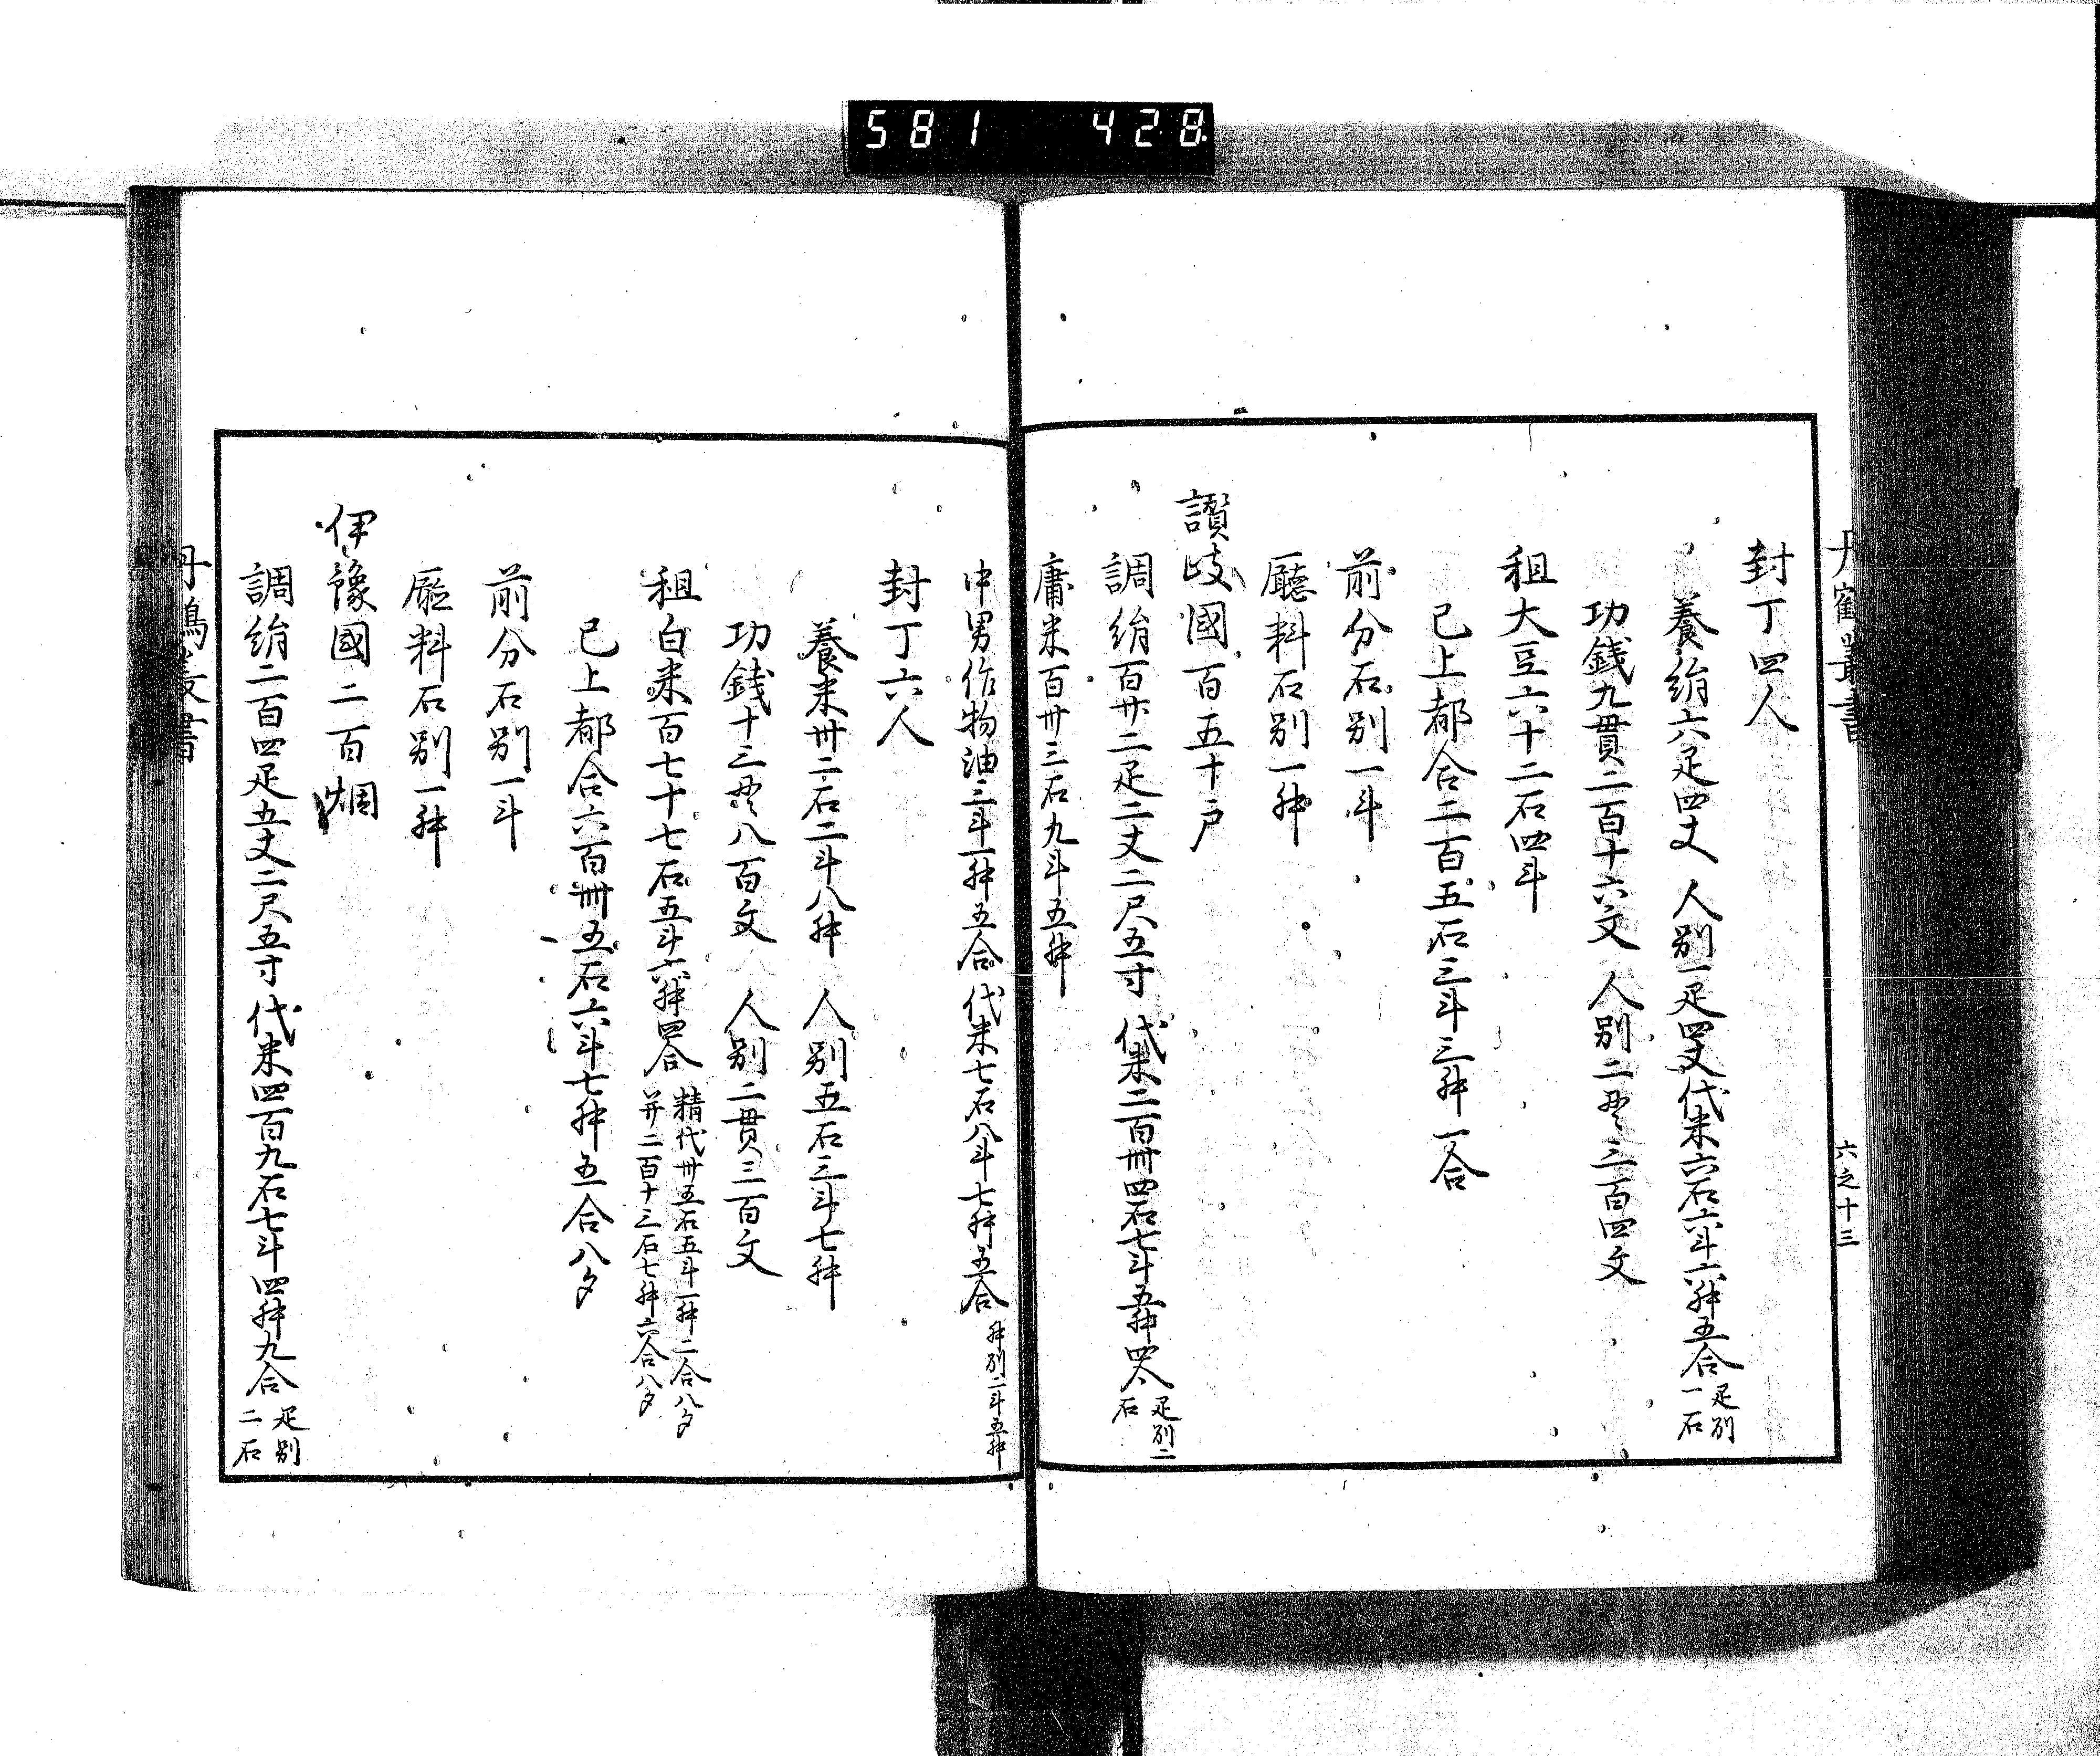 581 428
丹鶴叢書
六之十三
封丁四人
養絹六疋四丈 人別一疋四丈代米六石六斗六升五合 疋別一石
功銭九貫二百十六文 人別二貫三百四文
租大豆六十二石四斗
已上都合二百五石三斗三升一合
前分石別一斗
廳料石別一升
讃岐國百五十戸
調絹百廿二疋二丈二尺五寸 代米二百卌四石七斗五升四合 疋別二石
庸米百卅三石九斗五升
中男作物油三斗一升五合 代米七石八斗七升五合 升別二斗五升
封丁六人
養米卅二石二斗八升 人別五石三斗七升
功銭十三貫八百文 人別二貫三百文
租白米百七十七石五斗六升四合 精代卅五石五斗一升二合八夕
并二百十三石七升六合八夕
已上都合六百卌五石六斗七升五合八夕
前分石別一斗
廳料石別一升
伊豫國二百烟
調絹二百四疋五丈二尺五寸 代米四百九石七斗四升九合 疋別二石
丹鶴叢書